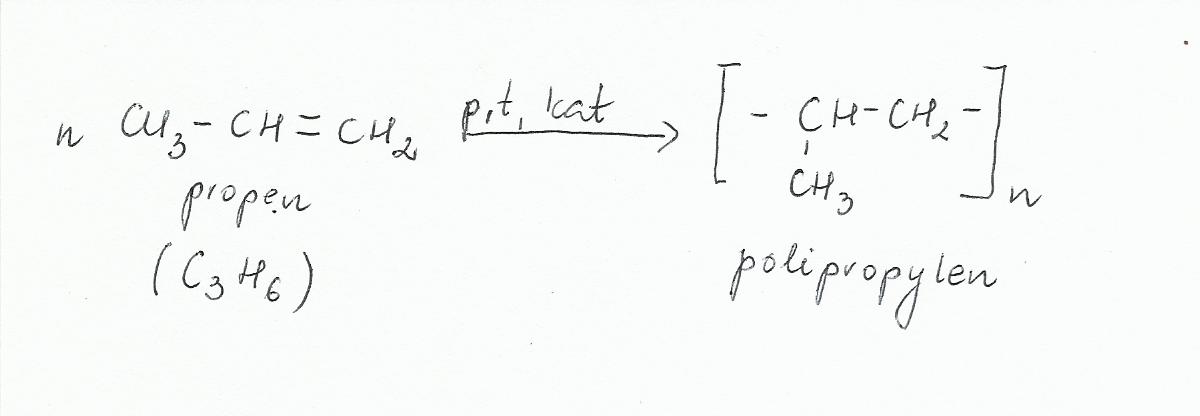 n CH₃ - CH = CH₂ p,t, kat → [ - CH - CH₂ - ]n
CH₃
propen
(C₃H₆)
polipropylen